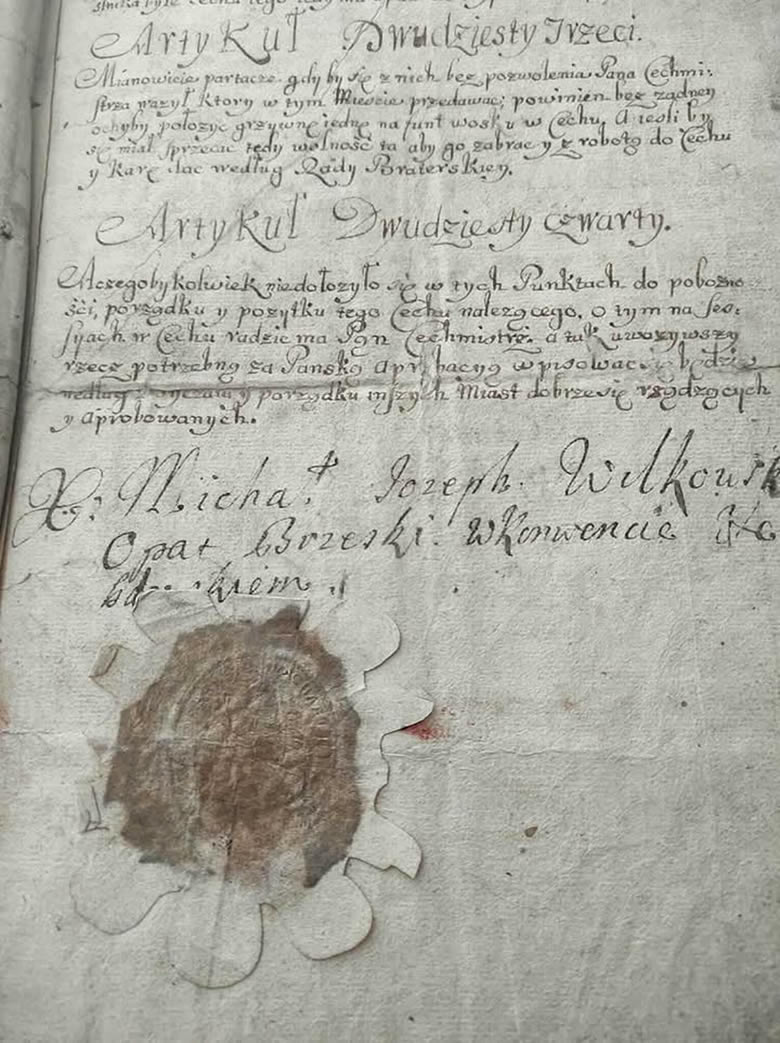 Artykuł Dwudziesty Trzeci.
Mianowicie partacze gdyby się z nich bez pozwolenia Pana Cechmi:
strza ważył ktory w tym Mieście przedawać; powinien bez żadney
ochyby położyć grzywnę iednę na funt wosku w Cechu. A iesli by
się miał sprzeciać tedy wolność ta aby go zabrac y z robotą do Cechu
y Karę dac według Rady Braterskiey.
Artykuł Dwudziesty czwarty.
Aczegobykolwiek niedołozyło się w tych Punktach do pobozno
ści, porządku y pozytku tego Cechu nalezącego, o tym na ses:
syach w Cechu radzic ma Pan Cechmistrz. a tak uwazywszy
rzecz potrzebną za Panską aprobacyą wpisowac się będzie
według y porządku inszych Miast dobrze się rządzących
y aprobowanych.
X: Michał Jozeph Wilkowsk
Opat Brzeski. w Konwencie